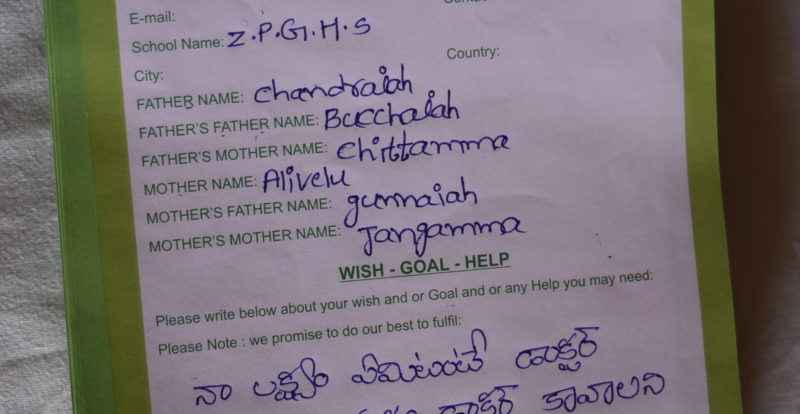 E-mail:
School Name: Z.P.G.H.S
City: Country:
FATHER NAME: Chandraiah
FATHER'S FATHER NAME: Bucchaiah
FATHER'S MOTHER NAME: Chittamma
MOTHER NAME: Alivelu
MOTHER'S FATHER NAME: gunnaiah
MOTHER'S MOTHER NAME: Jangamma
WISH - GOAL - HELP
Please write below about your wish and or Goal and or any Help you may need:
Please Note : we promise to do our best to fulfil:
నా లక్ష్యం ఏమిటంటే డాక్టర్
డాక్టర్ కావాలని